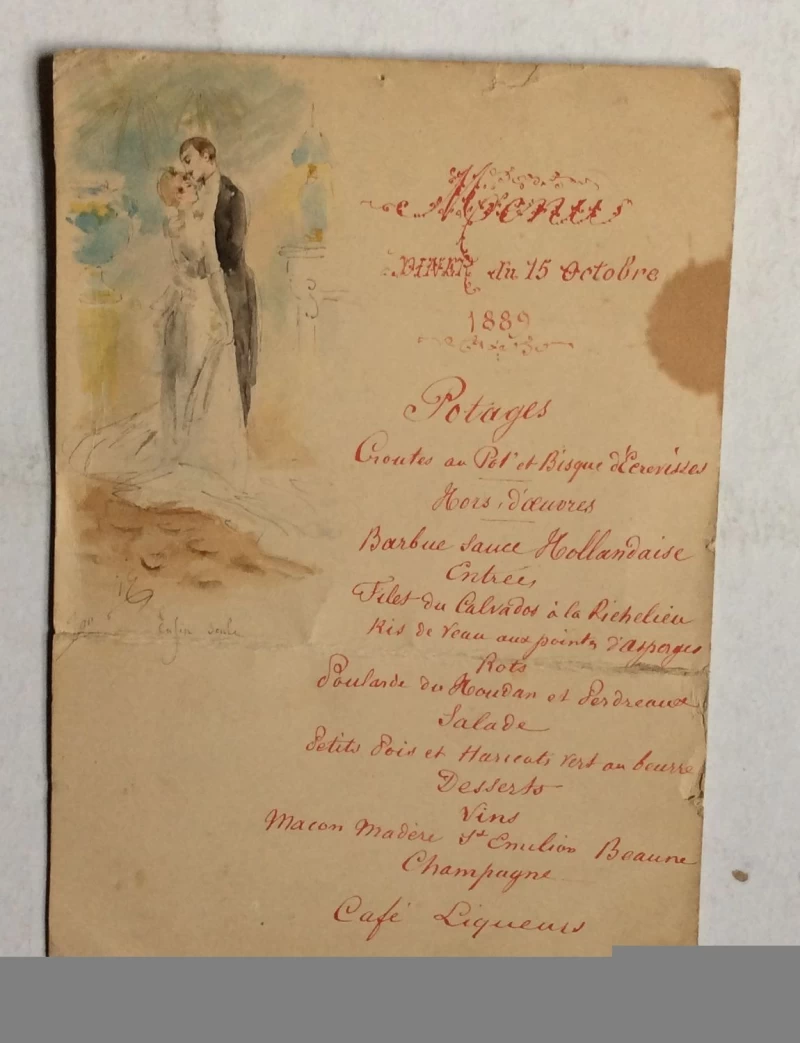 Menu
DINER du 15 Octobre
1889
Potages
Croutes au Pot et Bisque d'Ecrevisses
Hors d'œuvres
Barbue sauce Hollandaise
Entrées
Filet du Calvados à la Richelieu
Ris de Veau aux pointes d'Asperges
Rots
Poularde du Houdan et Perdreaux
Salade
Petits Pois et Haricots vert au beurre
Desserts
Vins
Macon Madère St Emilion Beaune
Champagne
Café Liqueurs
Enfin seuls